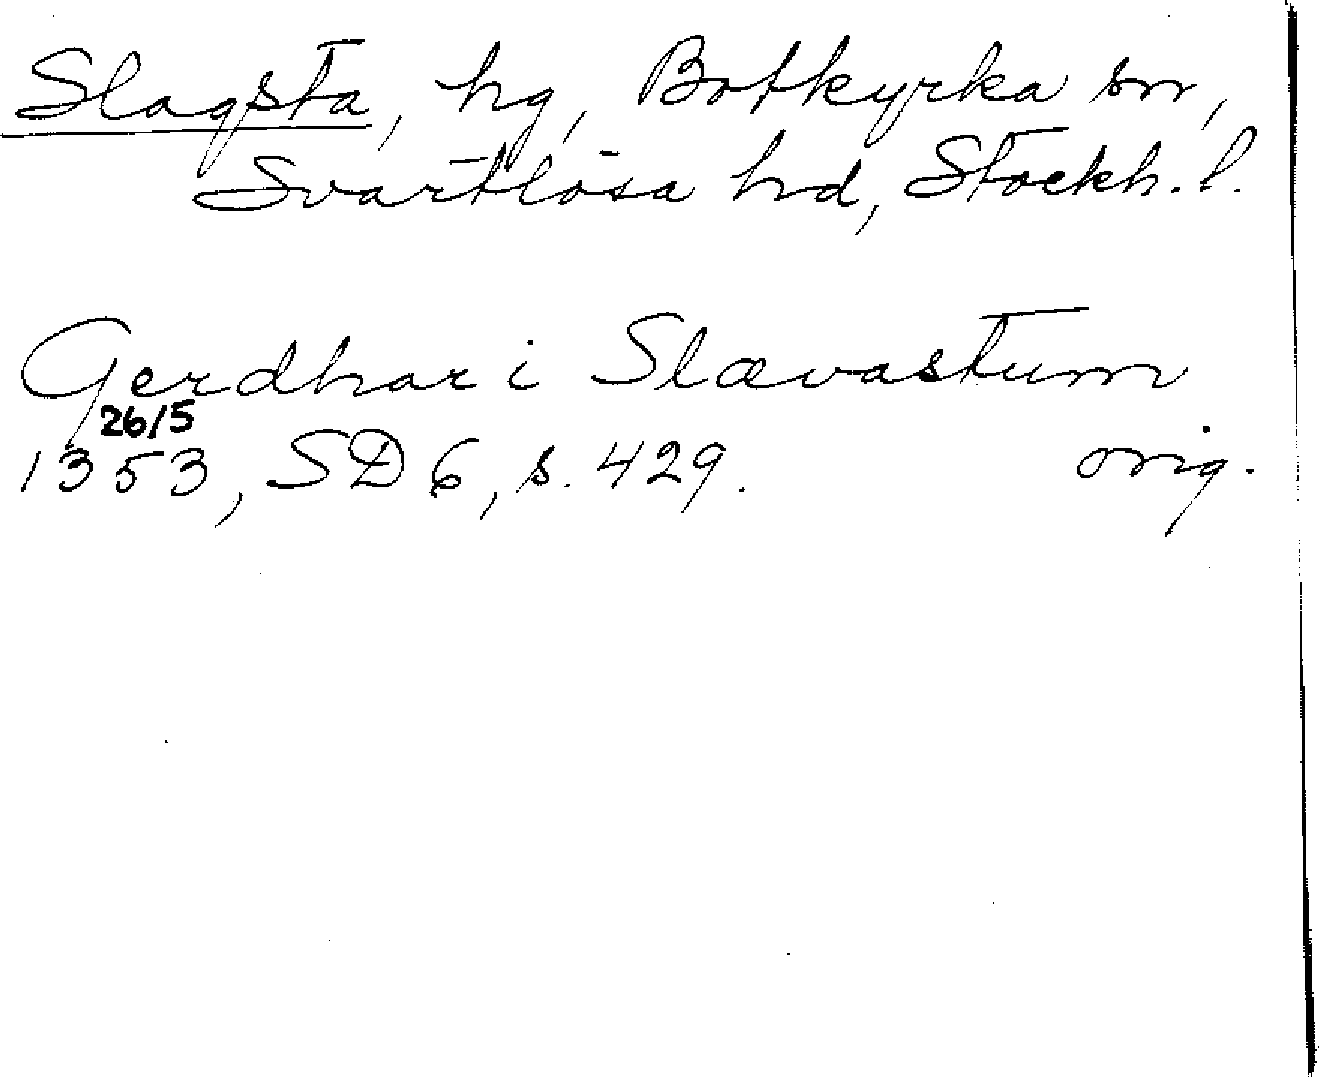 Slagsta, hg, Botkyrka sn,
Svartlösa hd, Stockh. l.
Gerdhar i Slævastum
26/5
1353, SD 6, s. 429. orig.